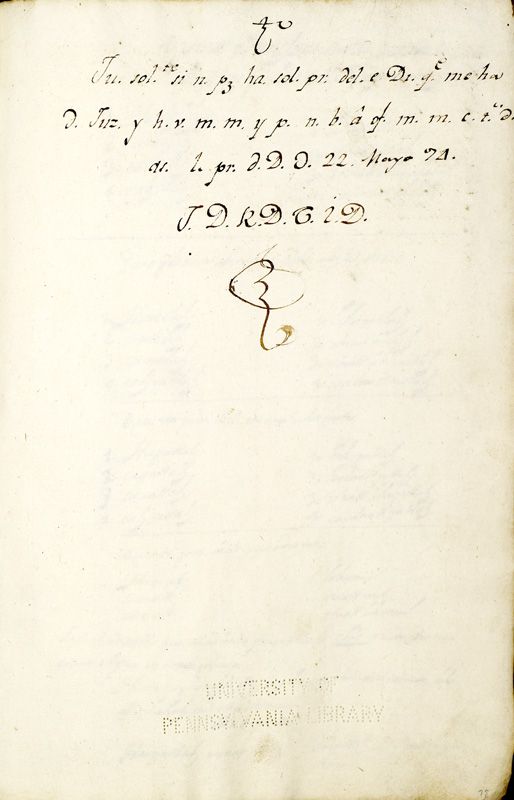 Ju. sol.te si n. pz ha. sol. pr. dol. e Di. q.e me ha
d. Juz. y h. v. m. m. y p. n. b. â qf. m. m. c. t.o d.
as. l. pr. d. D. D. 22. Mayo 74.
J. D. K. D. T. I. D.
UNIVERSITY OF
PENNSYLVANIA LIBRARY